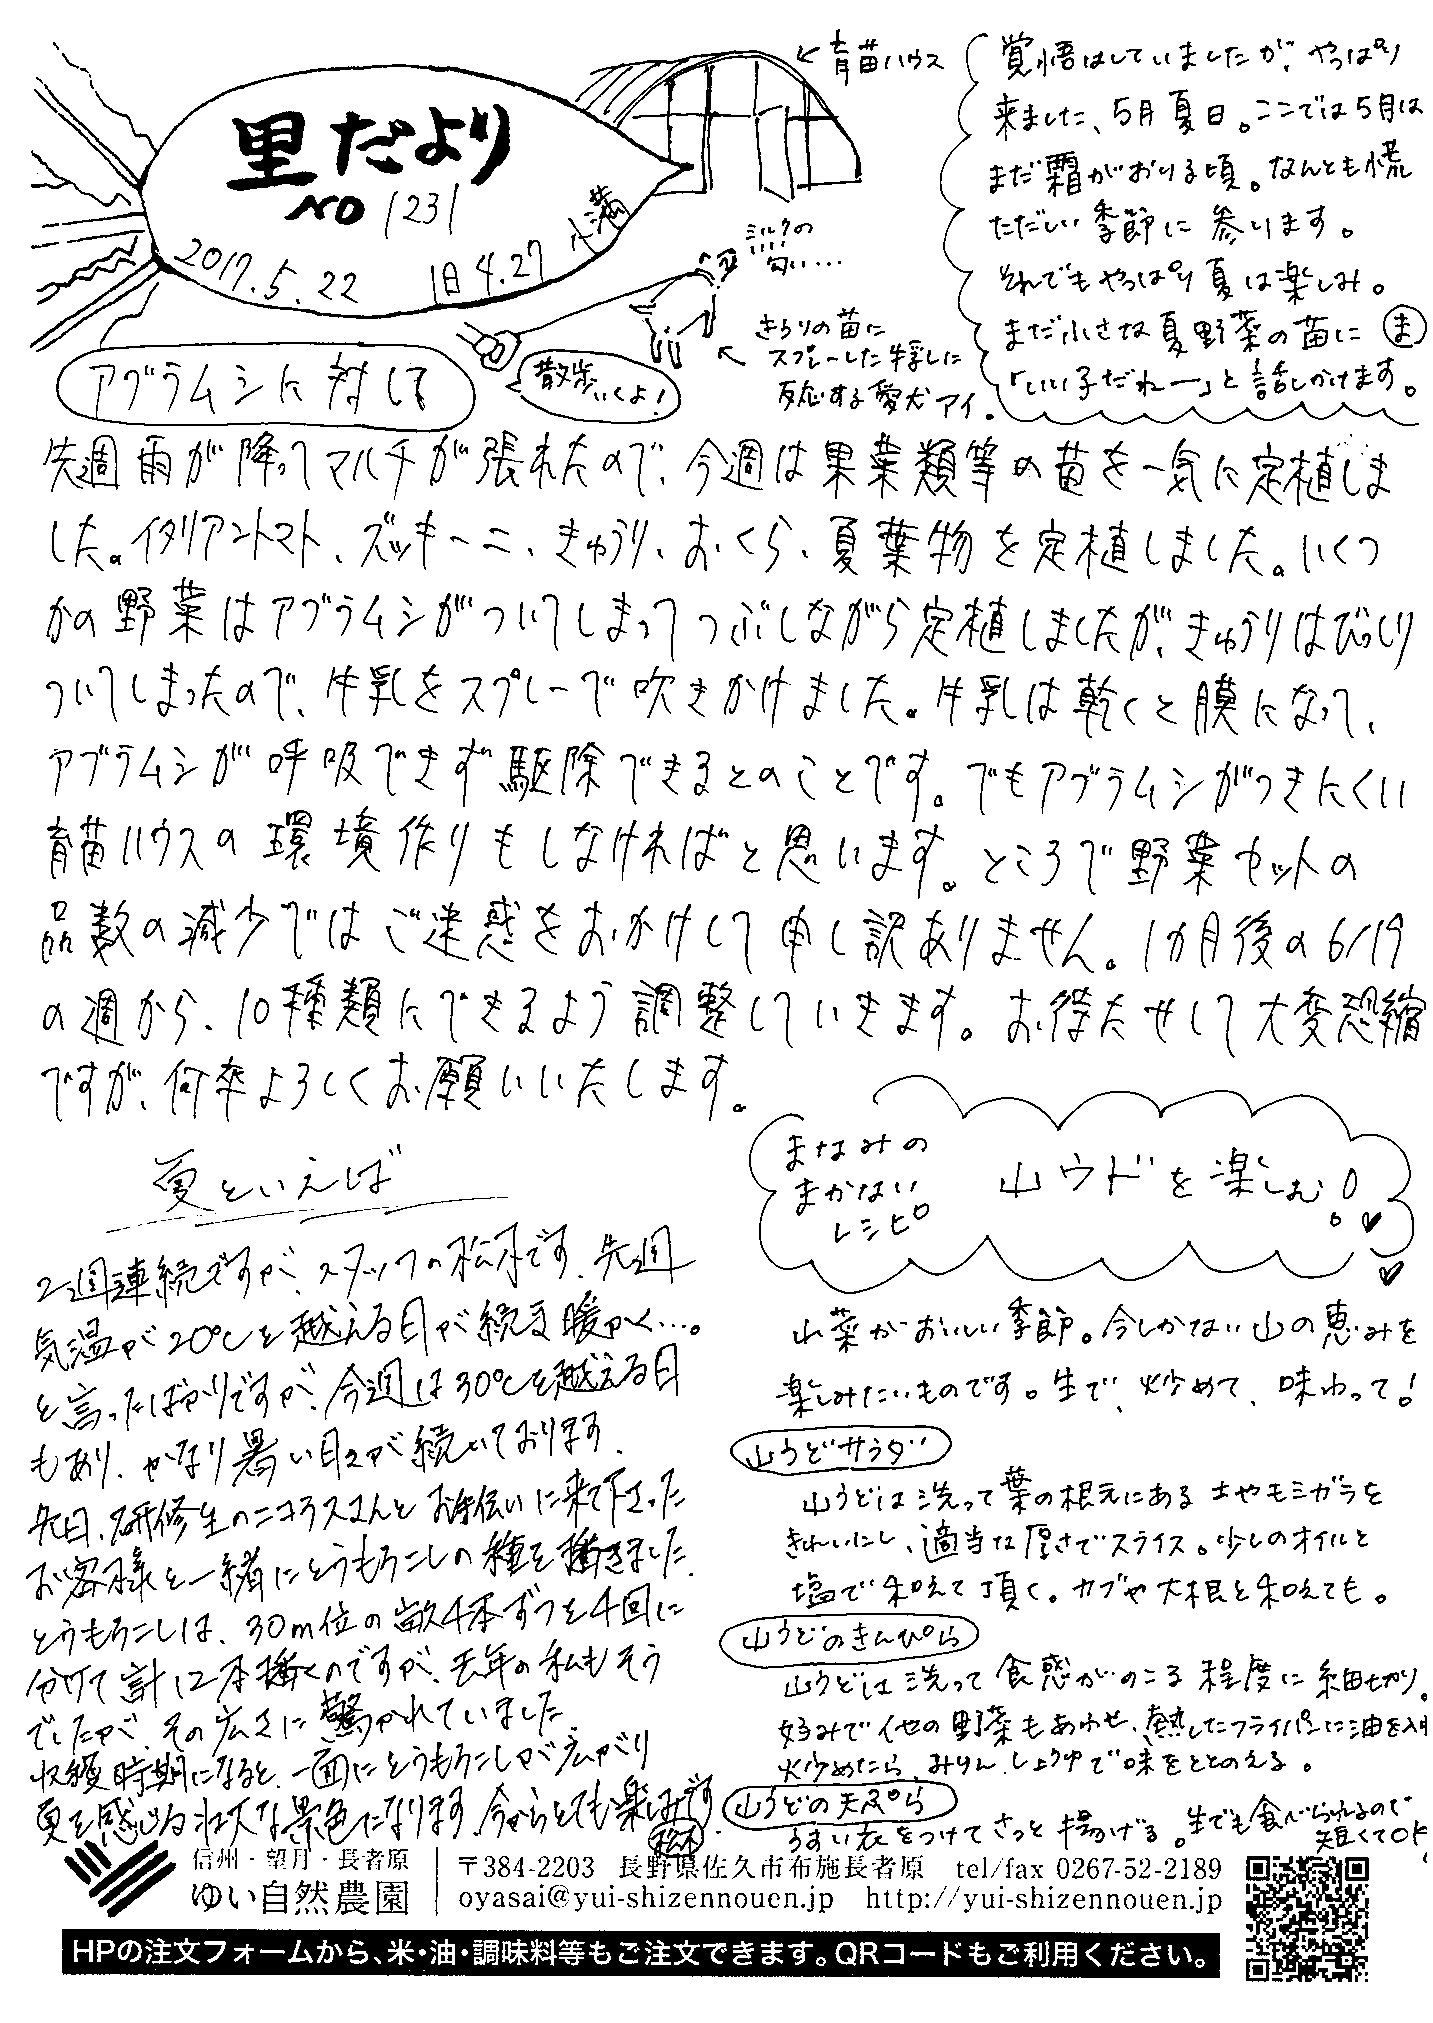 里だより
NO 1231
2017.5.22 旧4.27 小満
←育苗ハウス
ミルクの
匂い…
きゅうりの苗に
スプレーした牛乳に
反応する愛犬アイ.
散歩いくよ!
覚悟はしていましたが、やっぱり
来ました、5月夏日。ここでは5月は
まだ霜がおりる頃。なんとも慌
ただしい季節に参ります。
それでもやっぱり夏は楽しみ。
まだ小さな夏野菜の苗に ま
「いい子だれー」と話しかけます。
アブラムシに対して
先週雨が降ってマルチが張れたので、今週は果菜類等の苗を一気に定植しま
した。イタリアントマト、ズッキーニ、きゅうり、おくら、夏葉物を定植しました。いくつ
かの野菜はアブラムシがついてしまってつぶしながら定植しましたが、きゅうりはびっしり
ついてしまったので、牛乳をスプレーで吹きかけました。牛乳は乾くと膜になって、
アブラムシが呼吸できず駆除できるとのことです。でもアブラムシがつきにくい
育苗ハウスの環境作りもしなければと思います。ところで野菜セットの
品数の減少ではご迷惑をおかけして申し訳ありません。1か月後の6/19
の週から、10種類にできるよう調整していきます。お待たせして大変恐縮
ですが、何卒よろしくお願いいたします。
夏といえば
2週連続ですが、スタッフの松木です。先週
気温が20℃を越える日が続き暖かく…。
と言ったばかりですが、今週は30℃を越える日
もあり、かなり暑い日々が続いております。
先日、研修生のニコラスさんとお手伝いに来て下さった
お客様と一緒にとうもろこしの種を播きました。
とうもろこしは、30m位の畝4本ずつを4回に
分けて計12本播くのですが、去年の私もそう
でしたが、その広さに驚かれていました。
収穫時期になると、一面にとうもろこしが広がり
夏を感じる壮大な景色になります。今からとても楽しみです。
松木
まなみの
まかない
レシピ
山ウドを楽しむ!
山菜がおいしい季節。今しかない山の恵みを
楽しみたいものです。生で、炒めて、味わって!
山うどサラダ
山うどは洗って葉の根元にある土やモミガラを
きれいにし、適当な厚さでスライス。少しのオイルと
塩で和えて頂く。カブや大根と和えても。
山うどのきんぴら
山うどは洗って食感がのこる程度に細切り。
好みで他の野菜もあわせ、熱したフライパンに油を入れ
炒めたら、みりん、しょうゆで味をととのえる。
山うどの天ぷら
うすい衣をつけてさっと揚げる。生でも食べられるので
短くてOK。
信州・望月・長者原
ゆい自然農園
〒384-2203 長野県佐久市布施長者原 tel/fax 0267-52-2189
oyasai@yui-shizennouen.jp http://yui-shizennouen.jp
HPの注文フォームから、米・油・調味料等もご注文できます。QRコードもご利用ください。